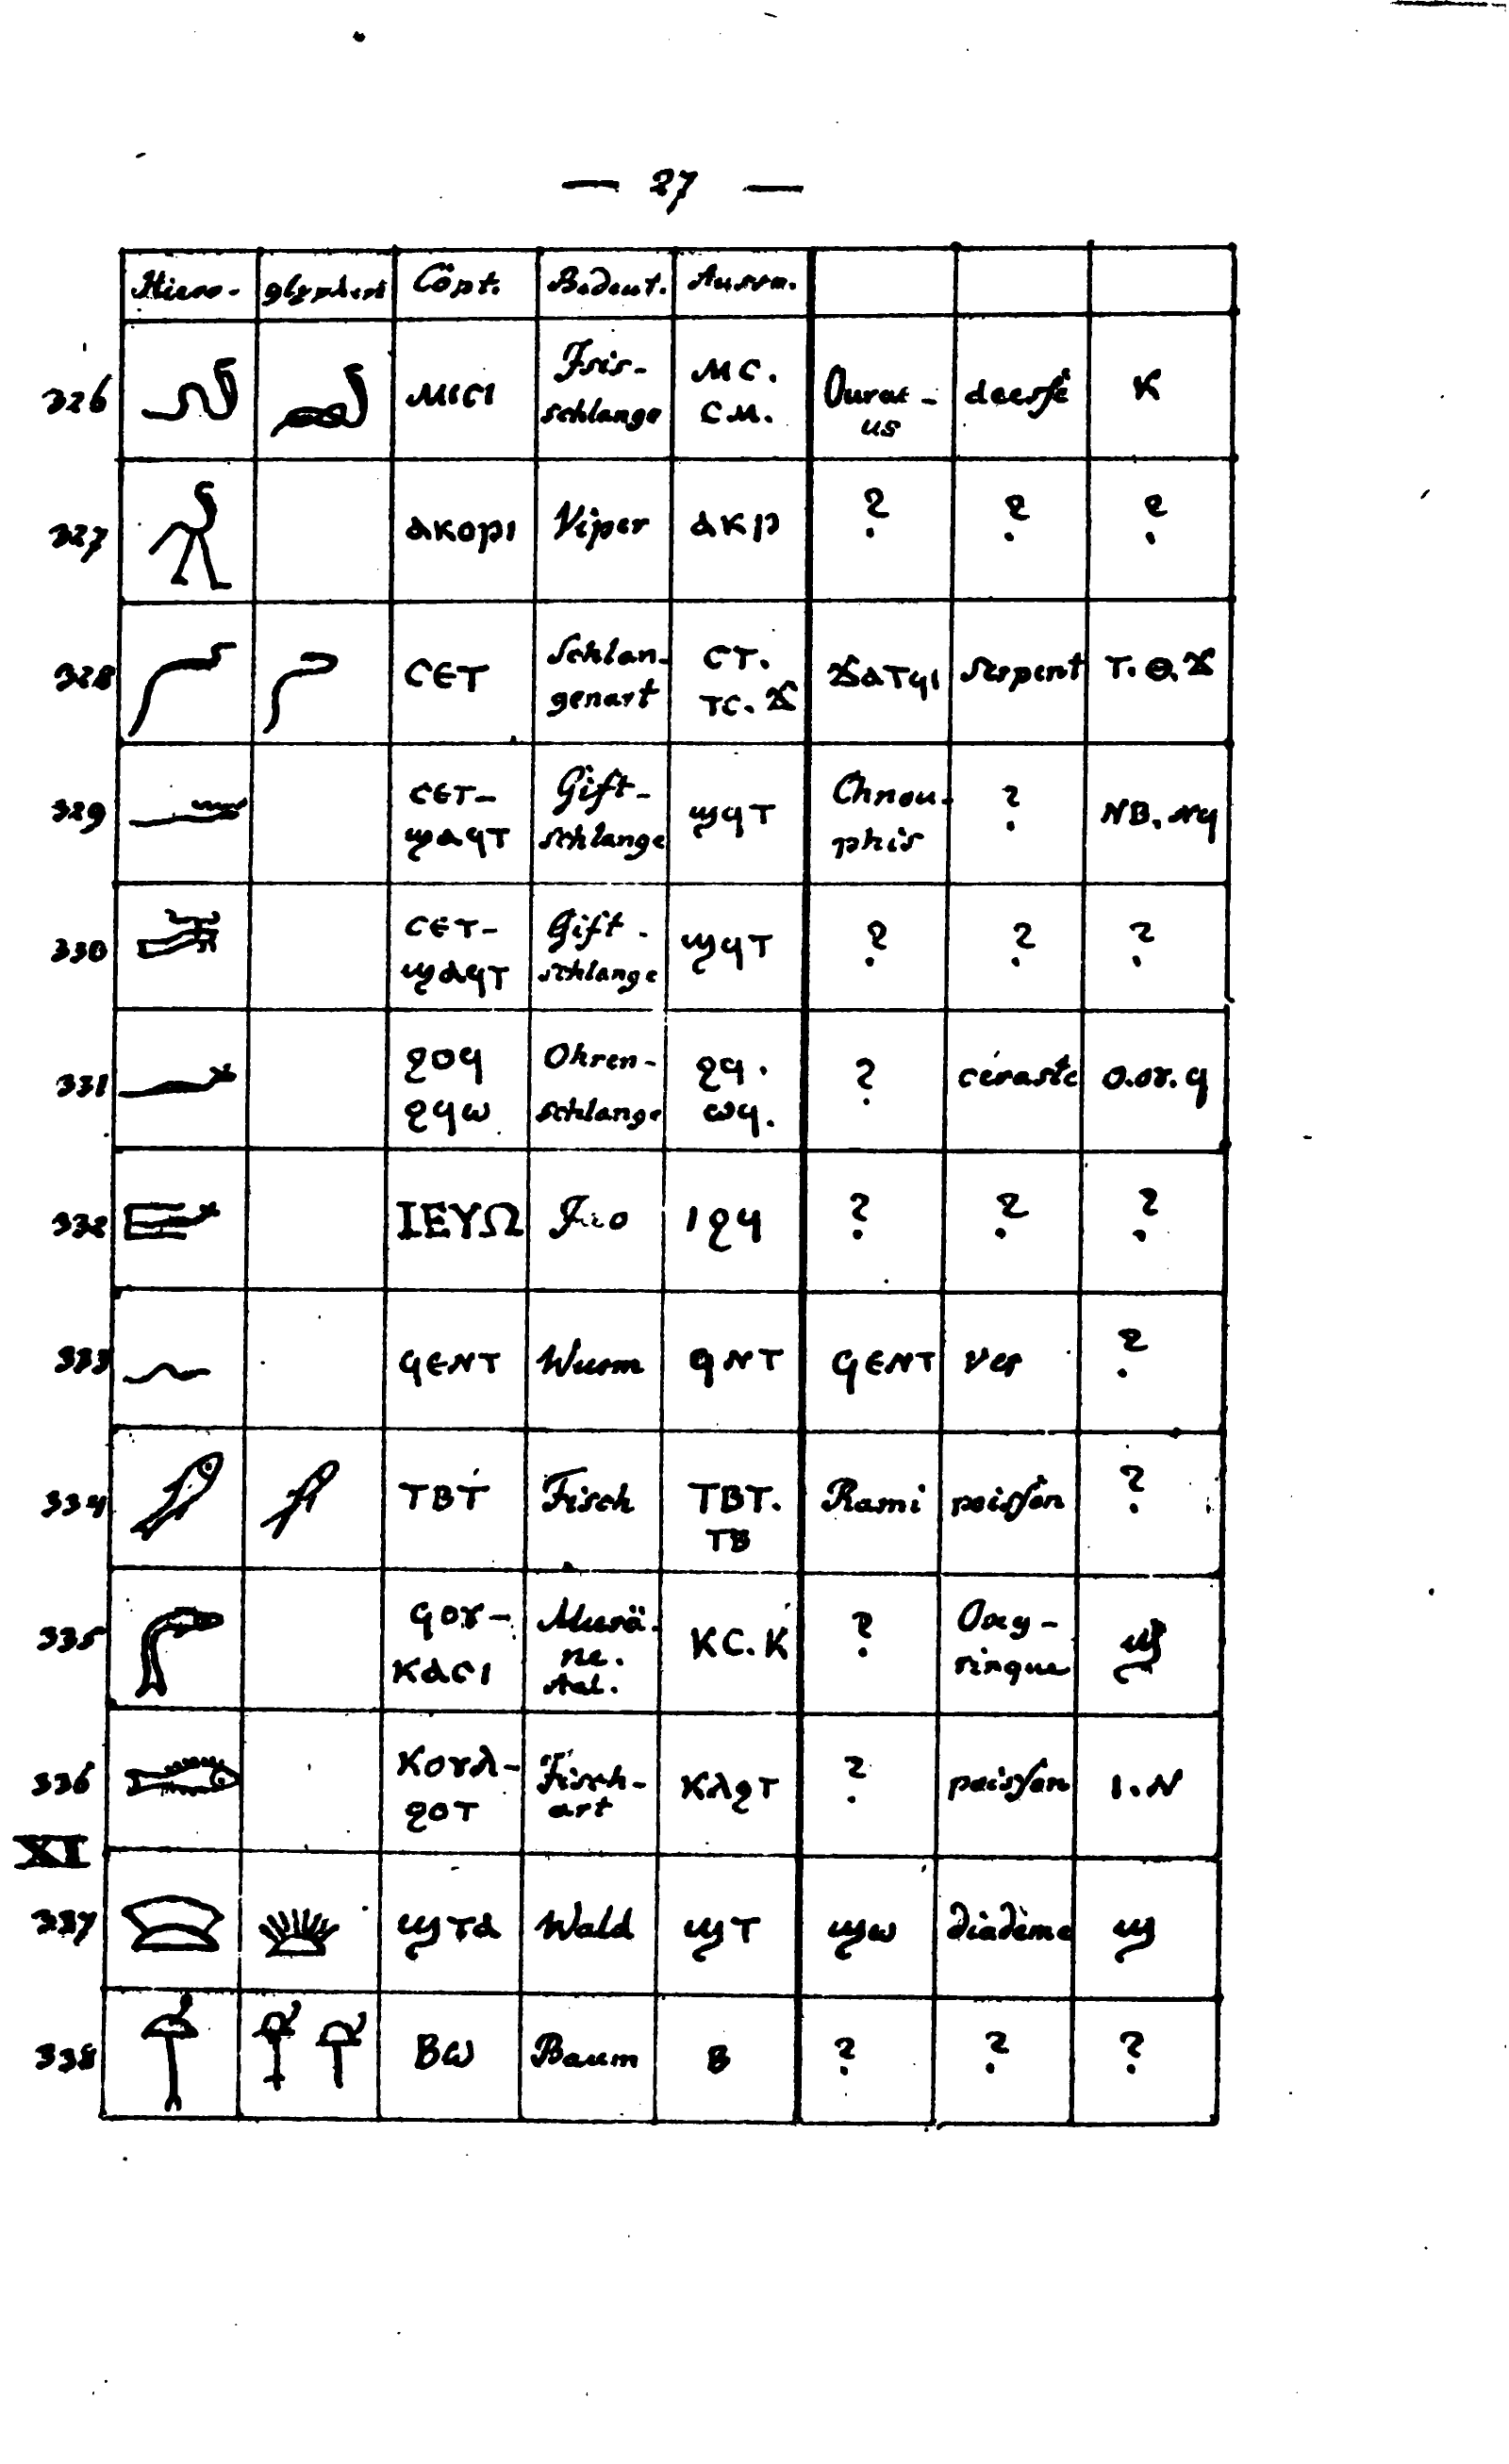 — 27 —
Hiero- glyphen Copt. Bedeut. Aussp.
326 ⲙⲓⲥⲓ Isis-schlange ⲙⲥ. ⲥⲙ. Ouraeus déesse K
327 ⲁⲕⲟⲣⲓ Viper ⲁⲕⲣ ? ? ?
328 ⲥⲉⲧ Schlan-genart ⲥⲧ. ⲧⲥ. ϫ ϫⲁⲧϥⲓ Serpent ⲧ. ⲑ. ϫ
329 ⲥⲉⲧ-ϣⲁϥⲧ Gift-schlange ϣϥⲧ Chnou-phis ? ⲛⲃ. ⲛϥ
330 ⲥⲉⲧ-ϣⲁϥⲧ Gift-schlange ϣϥⲧ ? ? ?
331 ϩⲟϥ ϩϥⲱ Ohren-schlange ϩϥ. ⲱϥ. ? céraste ⲟ.ⲟⲩ. ϥ
332 ΙΕΥΩ ⲓϩϥ ? ? ?
333 ϥⲉⲛⲧ Wurm ϥⲛⲧ ϥⲉⲛⲧ ver ?
334 ⲧⲃⲧ Fisch ⲧⲃⲧ. ⲧⲃ Rami poisson ?
335 ϥⲟⲩ-ⲕⲁⲥⲓ Murä-ne. Aal. ⲕⲥ. ⲕ ? Oxy-rinque ϣ
336 ⲕⲟⲩⲗ-ϩⲟⲧ Fisch-art ⲕⲗϩⲧ ? poisson ⲓ. ⲛ
XI
337 ϣⲧⲁ Wald ϣⲧ ϣⲱ diadème ϣ
338 ⲃⲱ Baum ⲃ ? ? ?